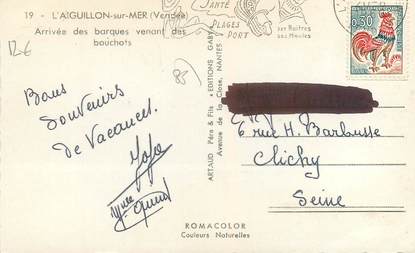 19 - L'AIGUILLON-sur-MER (Vendée)
Arrivée des barques venant des
bouchots
12€
SANTÉ
PLAGES
PORT
ses Huîtres
ses Moules
0,30
85
Bons
Souvenirs
de Vacances.
ARTAUD Père & Fils • EDITIONS GABY
Avenue de la Close, NANTES
6 rue H. Barbusse
Clichy
Seine
ROMACOLOR
Couleurs Naturelles